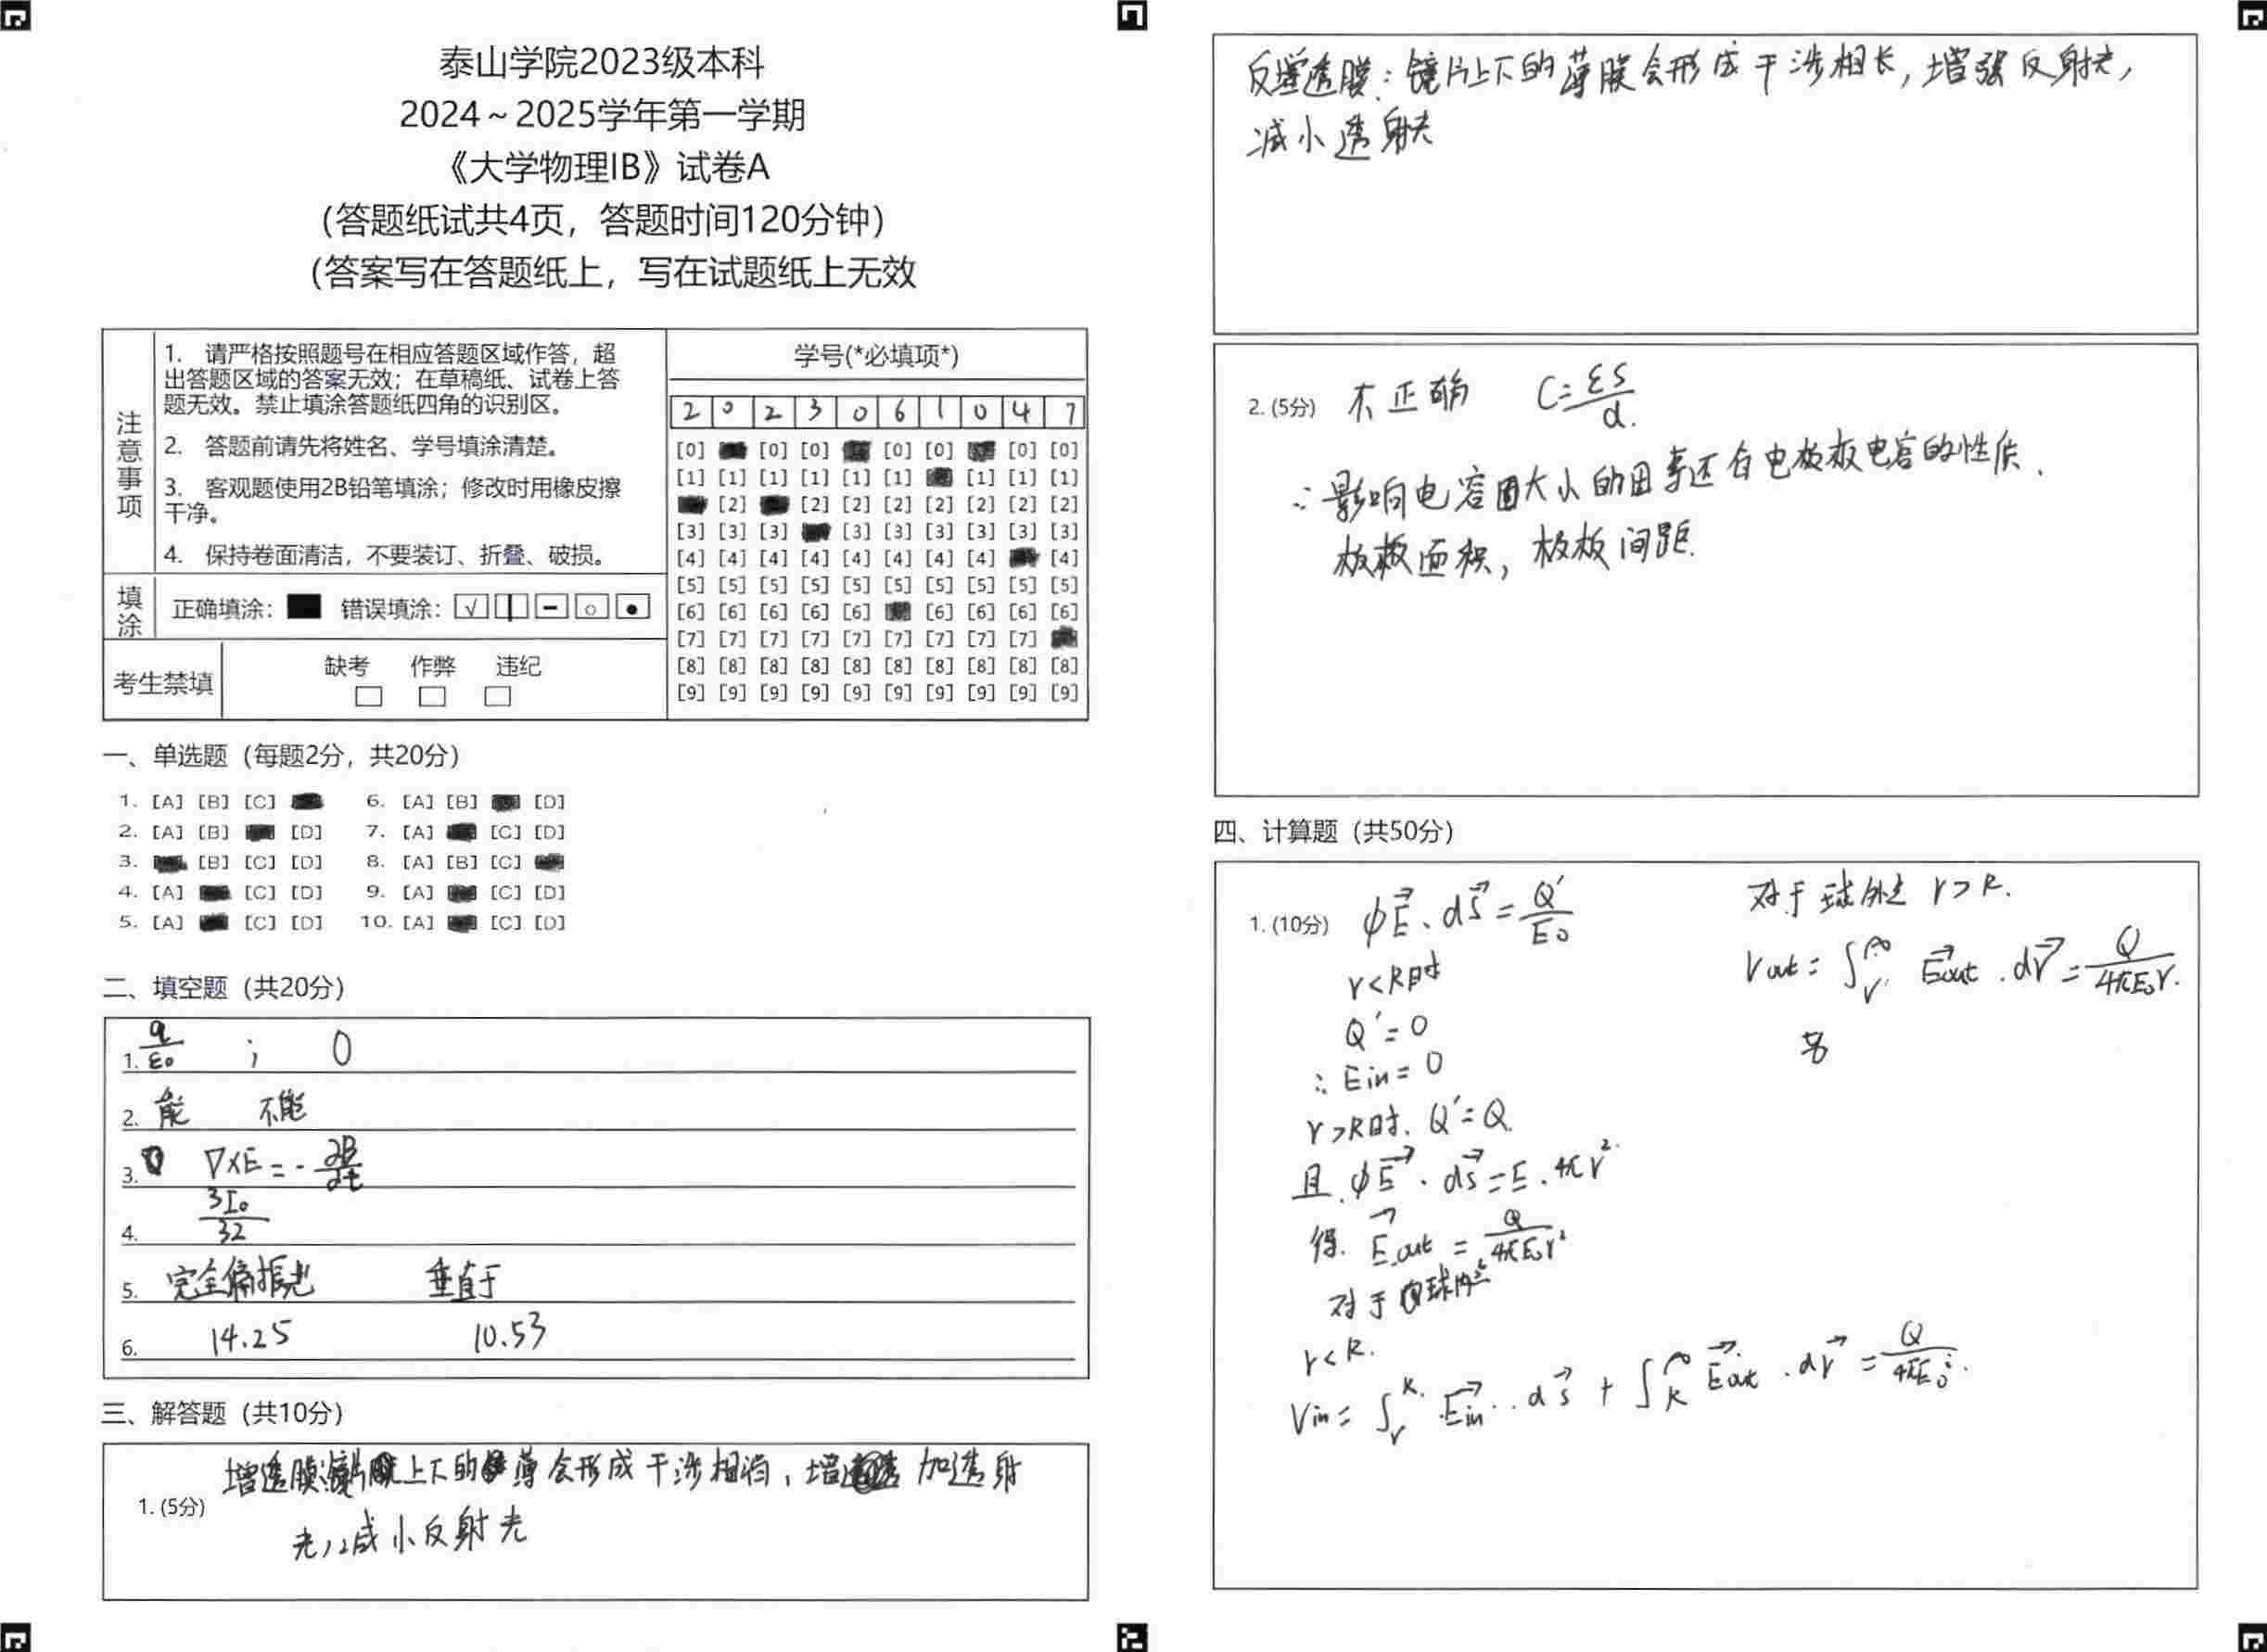 泰山学院2023级本科
2024～2025学年第一学期
《大学物理IB》试卷A
（答题纸试共4页，答题时间120分钟）
（答案写在答题纸上，写在试题纸上无效
注意事项
1. 请严格按照题号在相应答题区域作答，超
出答题区域的答案无效；在草稿纸、试卷上答
题无效。禁止填涂答题纸四角的识别区。
2. 答题前请先将姓名、学号填涂清楚。
3. 客观题使用2B铅笔填涂；修改时用橡皮擦
干净。
4. 保持卷面清洁，不要装订、折叠、破损。
填涂
正确填涂： 错误填涂：
考生禁填
缺考 作弊 违纪
学号(*必填项*)
2 0 2 3 0 6 1 0 4 7
[0] [0] [0] [0] [0] [0] [0]
[1] [1] [1] [1] [1] [1] [1] [1] [1]
[2] [2] [2] [2] [2] [2] [2] [2]
[3] [3] [3] [3] [3] [3] [3] [3] [3]
[4] [4] [4] [4] [4] [4] [4] [4] [4]
[5] [5] [5] [5] [5] [5] [5] [5] [5] [5]
[6] [6] [6] [6] [6] [6] [6] [6] [6]
[7] [7] [7] [7] [7] [7] [7] [7] [7]
[8] [8] [8] [8] [8] [8] [8] [8] [8] [8]
[9] [9] [9] [9] [9] [9] [9] [9] [9] [9]
一、单选题（每题2分，共20分）
1. [A] [B] [C] 6. [A] [B] [D]
2. [A] [B] [D] 7. [A] [C] [D]
3. [B] [C] [D] 8. [A] [B] [C]
4. [A] [C] [D] 9. [A] [C] [D]
5. [A] [C] [D] 10. [A] [C] [D]
二、填空题（共20分）
1. q/ε0 ; 0
2. 能 不能
3. ∇×E = -∂B/∂t
4. 3I0/32
5. 完全偏振光 垂直于
6. 14.25 10.53
三、解答题（共10分）
1. (5分) 增透膜: 上下的薄会形成干涉相消，增加透射
光，减小反射光
反增透膜：镜片上下的薄膜会形成干涉相长，增强反射光，
减小透射光
2. (5分) 不正确 C=εS/d.
∴影响电容大小的因素还有电极板电容的性质.
极板面积，极板间距.
四、计算题（共50分）
1. (10分) ∮E→·dS→=Q'/E0
r<R时
Q'=0
∴Ein=0
r>R时. Q'=Q.
且.∮E→·dS→=E.4πr².
得. E→out = Q/4πE0r²
对于球内
r<R.
Vin=∫r^R. E→in·ds→ + ∫R^∞ E→out·dr→ = Q/4πE0
对于球外 r>R.
Vout=∫r^∞ E→out·dr→=Q/4πE0r.